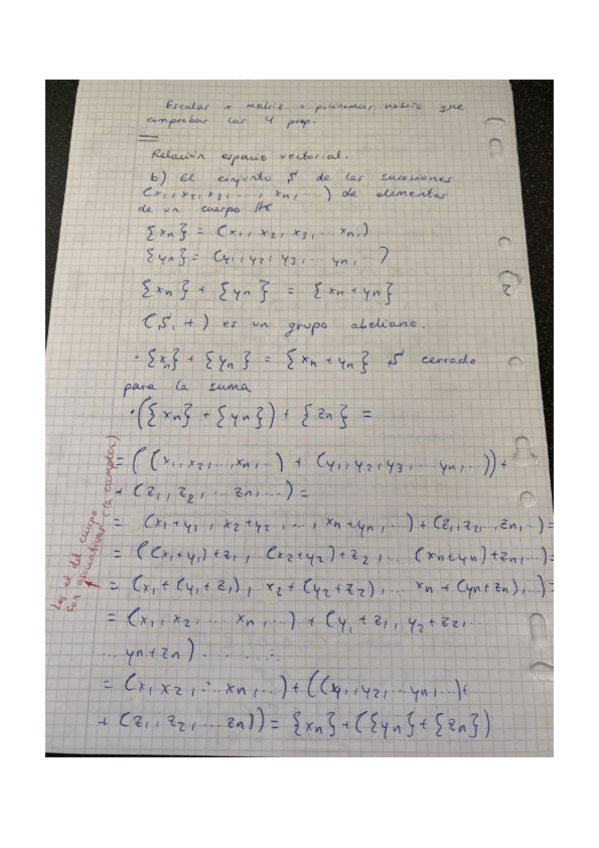 Escalar x matriz o polinomios habría que
comprobar las 4 prop.
Relación espacio vectorial.
b) El conjunto S de las sucesiones
(x₁, x₂, x₃, ..., xₙ, ...) de elementos
de un cuerpo IK
{xₙ} = (x₁, x₂, x₃, ... xₙ, )
{yₙ} = (y₁, y₂, y₃, ... yₙ, ... )
{xₙ} + {yₙ} = {xₙ + yₙ}
2
(S, +) es un grupo abeliano.
· {xₙ} + {yₙ} = {xₙ + yₙ} S cerrado
para la suma
· ({xₙ} + {yₙ}) + {zₙ} =
= ((x₁, x₂, ..., xₙ, ...) + (y₁, y₂, y₃, ... yₙ, ...)) +
+ (z₁, z₂, ... zₙ, ...) =
= (x₁+y₁, x₂+y₂, ..., xₙ+yₙ, ...) + (z₁, z₂, , zₙ, ..) =
= ((x₁+y₁)+z₁, (x₂+y₂)+z₂, ... (xₙ+yₙ)+zₙ, ...) =
= (x₁ + (y₁+z₁), x₂+(y₂+z₂), ... xₙ + (yₙ+zₙ), ..) =
= (x₁, x₂, ... xₙ, ...) + (y₁+z₁, y₂+z₂, ...
... yₙ+zₙ)
= (x₁, x₂, ... xₙ, ...) + ((y₁, y₂, ... yₙ, ...) +
+ (z₁, z₂, ... zₙ)) = {xₙ} + ({yₙ} + {zₙ})
Los el. del cuerpo
son asociativas (la cumplen)